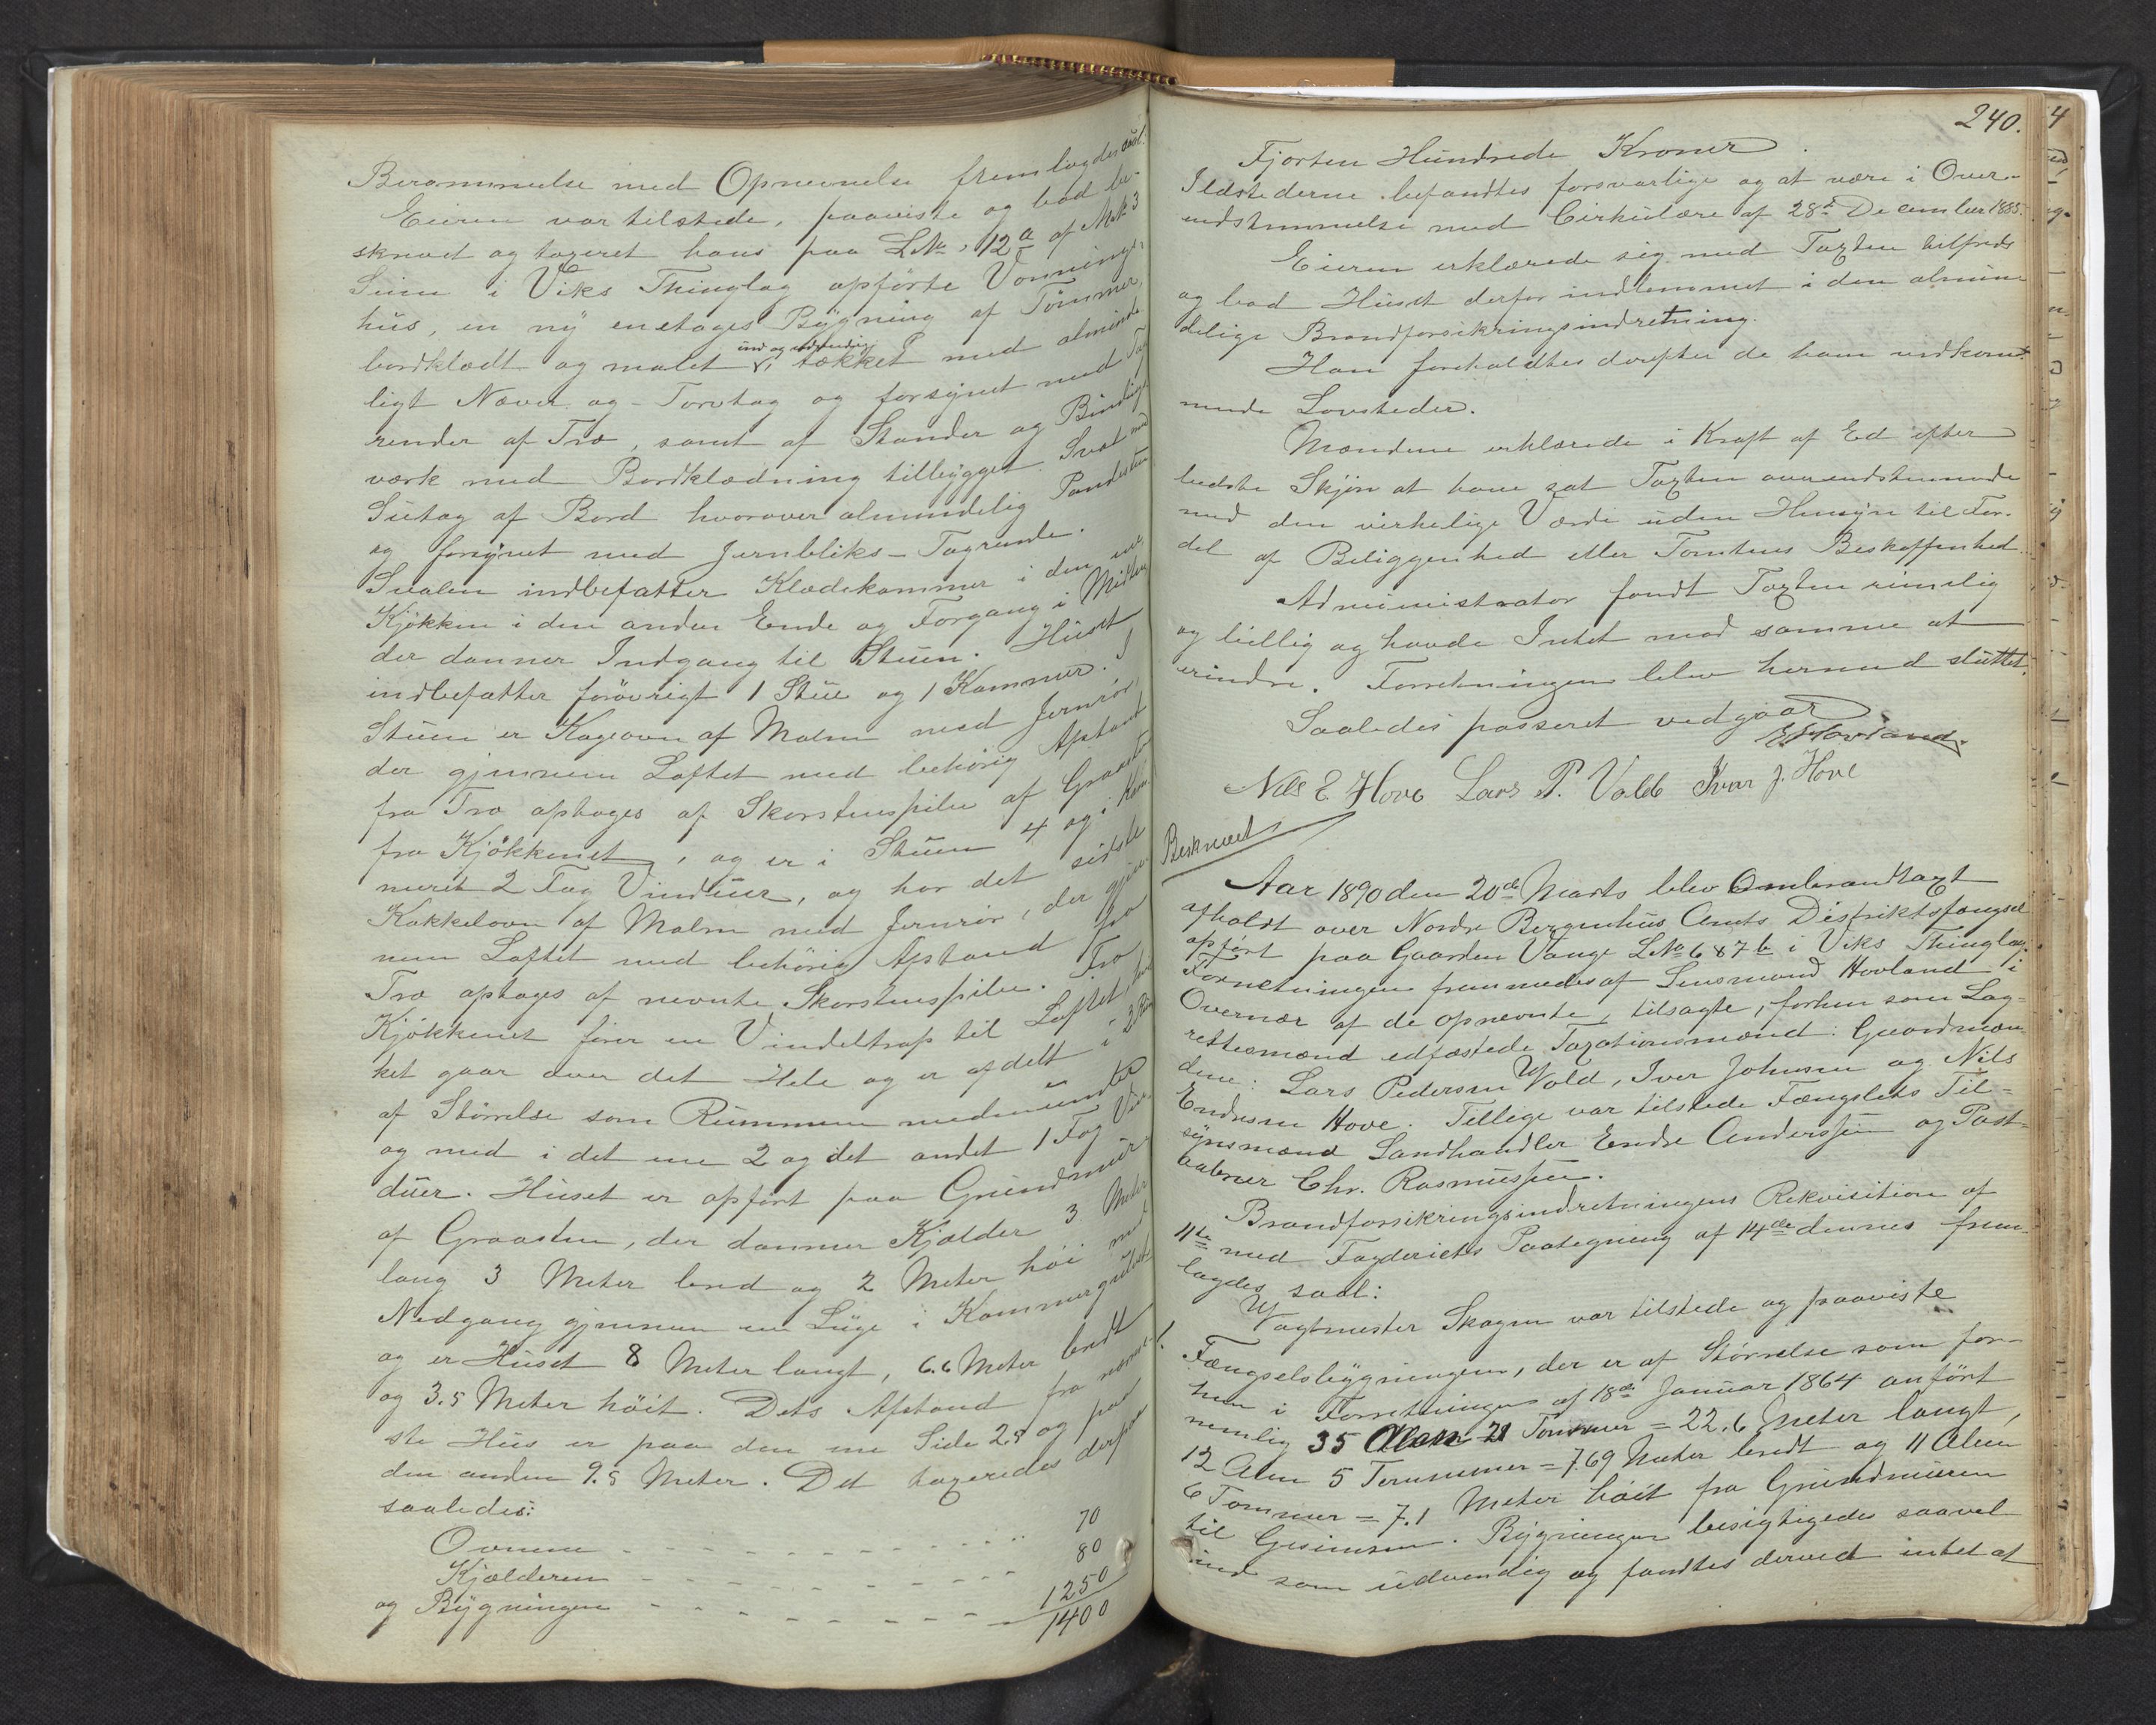 Berammelse med Opnevnelse fremlagdes saal.
Eieren var tilstede, paaviste og bad be-
skrevet og taxeret hans paa LNo 12a af Mk 3
i Viks Thinglag opförte Vonnings-
hus, en ny enetages Bygning af Tømmer,
bordklædt og malet ind og udvendig, tækket med alminde
ligt Næver og Torvtag og forsynet med Tag
render af Træ, samt af Stander og Bindings
værk med Bordklædning tilbygget Sval med
Sutag af Bord hvorover almindelig Pandesten
og forsynet med Jernbliks-Tagrende.
Svalen indbefatter Klædekammer i den ene
Kjøkken i den anden Ende og Forgang i Midten
der danner Indgang til Stuen. Huset
indbefatter forövrigt 1 Stue og 1 Kammer. I
Stuen er Kogeovn af Malm med Jernrör,
der gjennem Loftet med behørig Afstand
fra Træ optages af Skorstenspibe af Graasten
fra Kjøkkenet, og er i Stuen 4 og i Kam-
meret 2 Fag Vinduer, og har det sidste
Kakkelovn af Malm med Jernrör, der gjen
nem Loftet med behörig Afstand fra
Træ optages af nevnte Skorstenspibe. Fra
Kjökkenet förer en Vindeltrap til Loftet, hvil
ket gaar over det Hele og er afdelt i 3 Rum
af Størrelse som Rummene nedenunder
og med i det ene 2 og det andet 1 Fag Vin
duer. Huset er opfört paa Grundmur
af Graasten, der danner Kjælder 3 Meter
lang 3 Meter bred og 2 Meter höi med
Nedgang gjennem en Luge i Kammergulvet
og er Huset 8 Meter langt, 6.6 Meter bredt
og 3.5 Meter höit. Dets Afstand fra nærme-
ste Hus er paa den ene Side 2.8 og paa
den anden 9.5 Meter. Det taxeredes derpaa
saaledes:
Ovnene - - - - 70
Kjælderen - - - - 80
og Bygningen - - - - 1250
1400
240.
Fjorten Hundrede Kroner.
Ildstederne befandtes forsvarlige og at være i Over-
endstemmelse med Cirkulære af 28de December 1885.
Eieren erklærede sig med Taxten tilfreds
og bad Huset derfor indlemmet i den almin
delige Brandforsikringsindretning.
Han foreholdtes derefter de ham vedkom-
mende Lovsteder.
Mændene erklærede i Kraft af Ed efter
bedste Skjøn at have sat Taxten overendstemmende
med den virkelige Værdi uden Hensyn til For-
del af Beliggenhed eller Tomtens Beskaffenhed.
Administrator fandt Taxten rimelig
og billig og havde Intet mod samme at
erindre. Forretningen blev hermed sluttet.
Saaledes passeret vedgaar
E Hovland.
Nils E. Hove Lars P. Vold Ivar J. Hove
Beskrevet
Aar 1890 den 20de Marts blev Ombrandtaxt
afholdt over Nordre Bergenhus Amts Distriktsfængsel
opfört paa Gaarden Vange LNo 687b i Viks Thinglag.
Forretningen fremmedes af Lensmand Hovland i
Overvær af de opnevnte, tilsagte, forhen som Lag-
rettesmænd edfæstede Taxationsmænd: Gaardmæn
dene: Lars Pedersen Vold, Iver Johnsen og Nils
Endresen Hove. Tillige var tilstede Fængslets Til-
synsmænd Landhandler Endre Anderssen og Post-
aabner Chr. Rasmussen.
Brandforsikringsindretningens Rekvisition af
11te med Fogderiets Paategning af 14de dennes frem-
lagdes saal:
Vagtmester Skagen var tilstede og paaviste
Fængselsbygningen, der er af Störrelse som for-
hen i Forretningen af 18de Januar 1864 anfört
nemlig 35 Alen 21 Tommer = 22.6 Meter langt,
12 Alen 5 Tommer = 7.69 Meter bredt og 11 Alen
6 Tommer = 7.1 Meter höit fra Grundmuren
til Gesimsen. Bygningen besigtigedes saavel
ind som udvendig og fandtes derved intet at